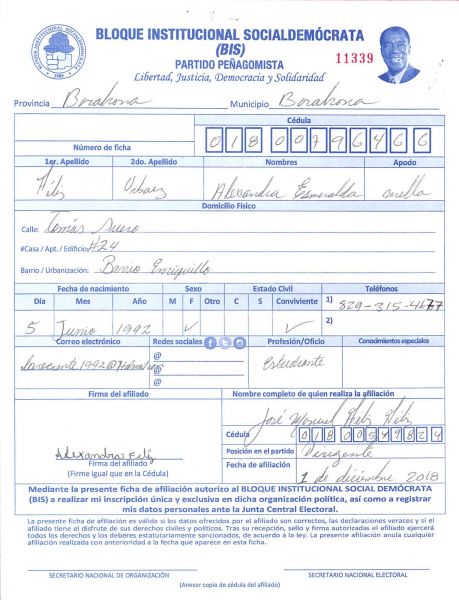 BLOQUE INSTITUCIONAL SOCIALDEMÓCRATA
(BIS)
PARTIDO PEÑAGOMISTA
11339
Libertad, Justicia, Democracia y Solidaridad
Provincia Barahona Municipio Barahona
Cédula
Número de ficha 01800796466
1er. Apellido 2do. Apellido Nombres Apodo
Féliz Urbaez Alexandra Esmeralda mella
Domicilio Físico
Calle: Tomás Suero
#Casa / Apt. / Edificio: #24
Barrio / Urbanización: Barrio Enriquillo
Fecha de nacimiento Sexo Estado Civil Teléfonos
Día Mes Año M F Otro C S Conviviente 1) 829-315-4677
5 Junio 1992 2)
Correo electrónico Redes sociales Profesión/Oficio Conocimientos especiales
@
@
@
Estudiante
Firma del afiliado Nombre completo de quien realiza la afiliación
José Manuel Féliz Féliz
Cédula 01800549824
Alexandra Feliz
Posición en el partido Dirigente
Firma del afiliado
(Firme igual que en la Cédula)
Fecha de afiliación 1 de diciembre 2018
Mediante la presente ficha de afiliación autorizo al BLOQUE INSTITUCIONAL SOCIAL DEMÓCRATA
(BIS) a realizar mi inscripción única y exclusiva en dicha organización política, así como a registrar
mis datos personales ante la Junta Central Electoral.
La presente ficha de afiliación es válida si los datos ofrecidos por el afiliado son correctos, las declaraciones veraces y si el
afiliado tiene el disfrute de sus derechos civiles y políticos. Tras su recepción, sello y firma autorizados el afiliado ejercerá
todos los derechos y los deberes estatutariamente sancionados, de acuerdo a la ley. La presente afiliación anula cualquier
afiliación realizada con anterioridad a la fecha que aparece en esta ficha.
SECRETARIO NACIONAL DE ORGANIZACIÓN SECRETARIO NACIONAL ELECTORAL
(Anexar copia de cédula del afiliado)